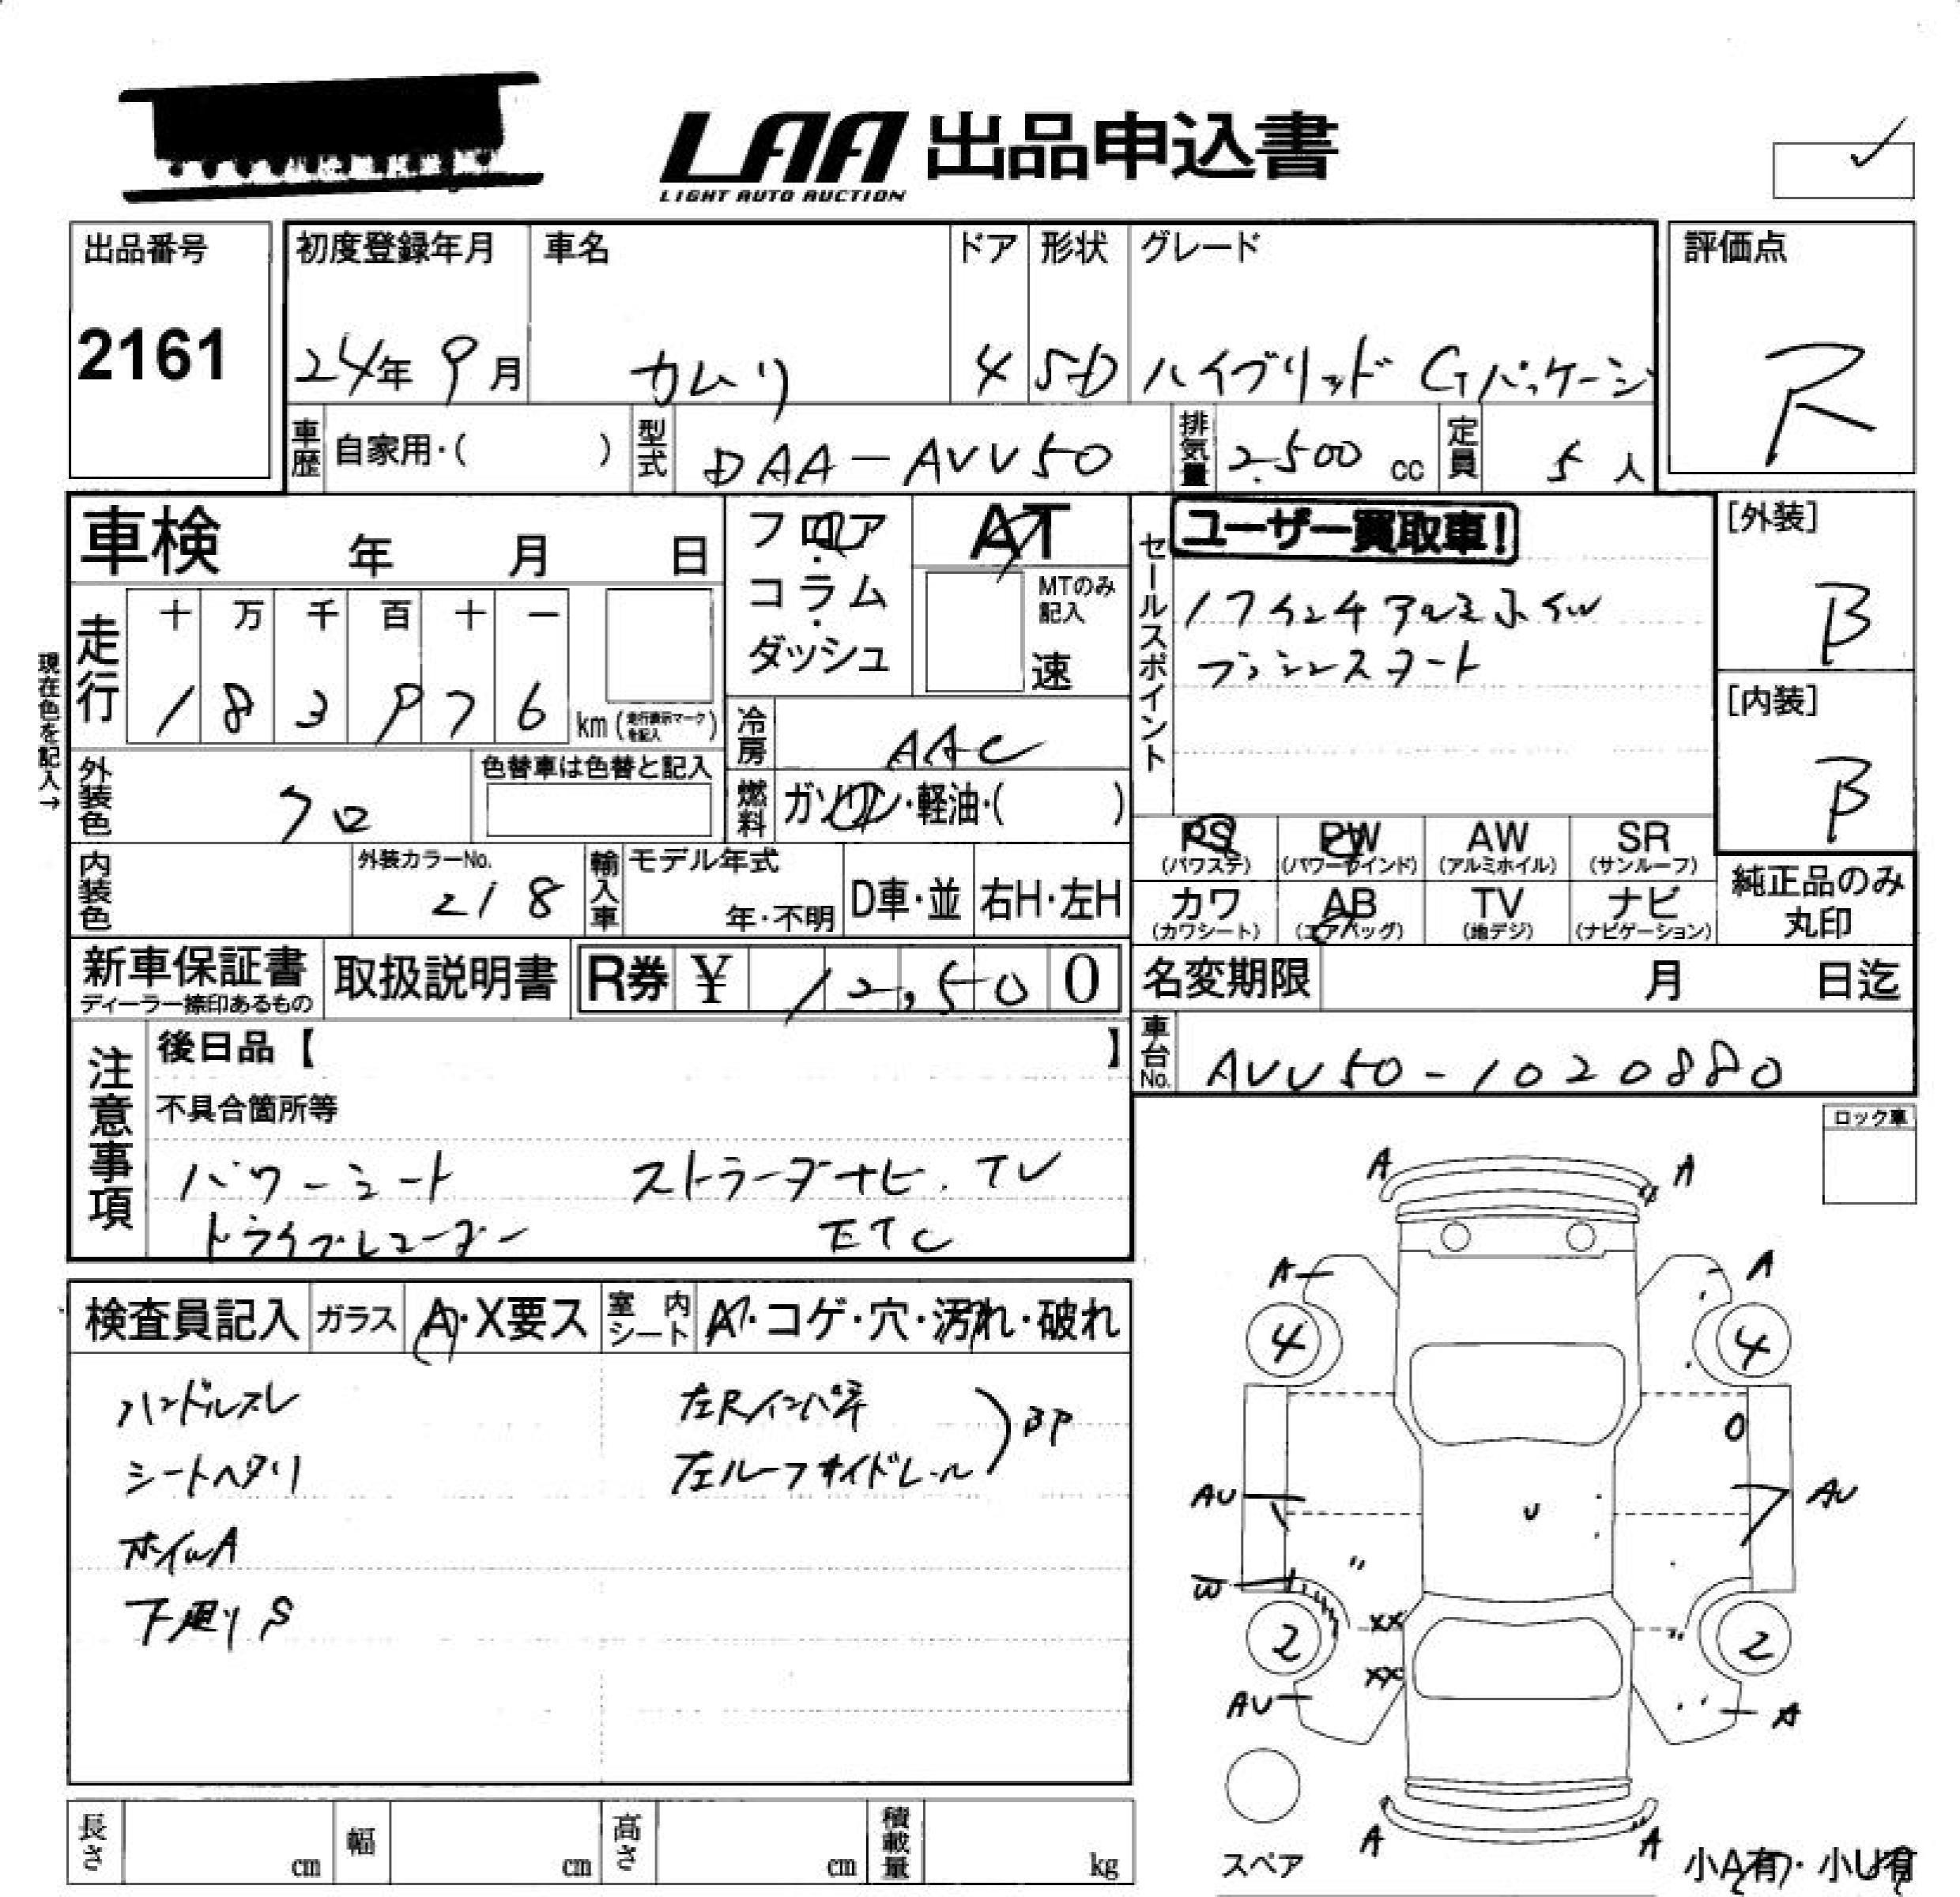 LAA 出品申込書
LIGHT AUTO AUCTION
出品番号
2161
初度登録年月
24年 9月
車名
カムリ
ドア
4
形状
SD
グレード
ハイブリッド Gパッケージ
評価点
R
車歴
自家用・( )
型式
DAA-AVV50
排気量
2.500 cc
定員
5 人
車検 年 月 日
フロア・コラム・ダッシュ
AT
MTのみ記入
速
セールスポイント
ユーザー買取車!
17インチアルミホイル
プッシュスタート
[外装]
B
[内装]
B
現在色を記入→
走行
十 万 千 百 十 一
1 8 3 9 7 6 km (走行表示マークを記入)
冷房
AAC
外装色
クロ
色替車は色替と記入
燃料
ガソリン・軽油・( )
PS
(パワステ)
PW
(パワーウインド)
AW
(アルミホイル)
SR
(サンルーフ)
カワ
(カワシート)
AB
(エアバッグ)
TV
(地デジ)
ナビ
(ナビゲーション)
純正品のみ丸印
内装色
外装カラーNo.
218
輸入車
モデル年式
年・不明
D車・並
右H・左H
新車保証書
ディーラー捺印あるもの
取扱説明書
R券 ¥ 12,500
名変期限 月 日迄
車台No.
AVV50-1020880
注意事項
後日品【 】
不具合箇所等
パワーシート ストラーダナビ.TV
ドライブレコーダー ETC
ロック車
検査員記入
ガラス
A・X要ス
室内シート
A・コゲ・穴・汚れ・破れ
ハンドルスレ
シートヘタリ
ホイルA
下廻りS
左Rインパネ
左ルーフサイドレール
BP
A A
A A
4 4
AU AU
U
W
XX
2 2
XX
AU A
A A
スペア
小A有・小U有
長さ cm
幅 cm
高さ cm
積載量 kg